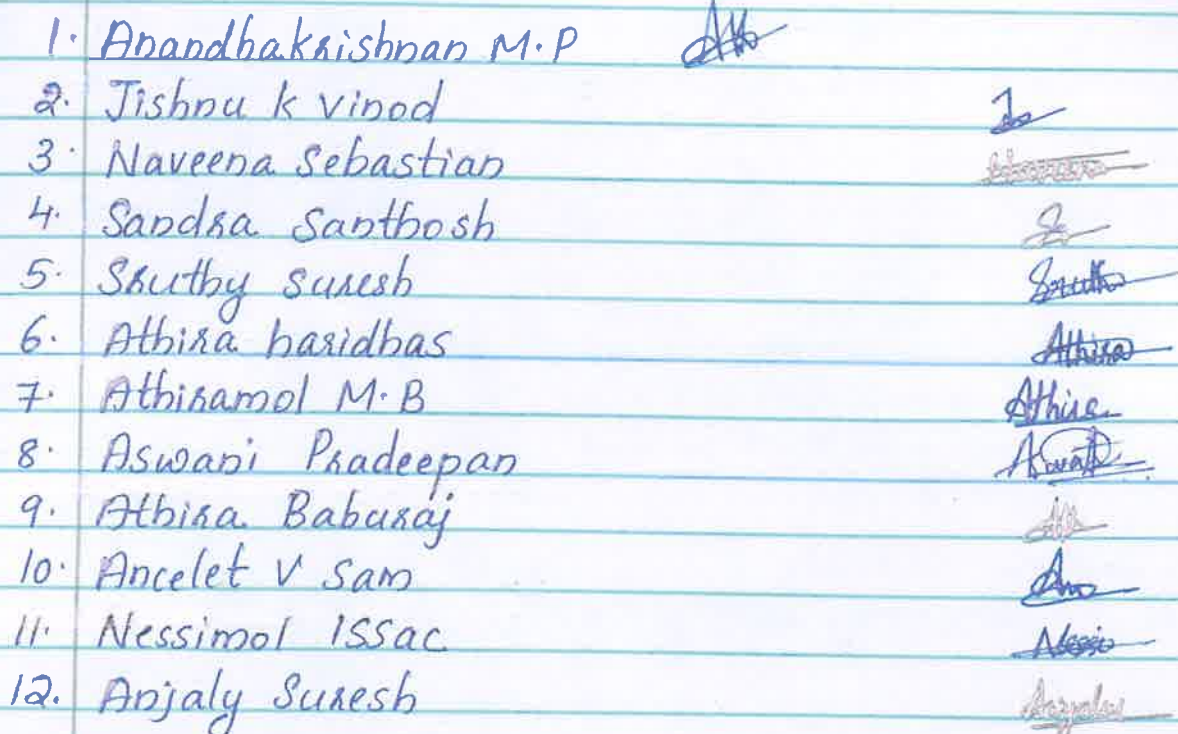 1. Anandhakrishnan M.P
2. Jishnu k vinod
3. Naveena Sebastian
4. Sandra Santhosh
5. Sruthy suresh Sruthy
6. Athira haridhas Athira
7. Athiramol M.B Athira
8. Aswani Pradeepan
9. Athira Baburaj
10. Ancelet V Sam
11. Nessimol ISSac
12. Anjaly Suresh